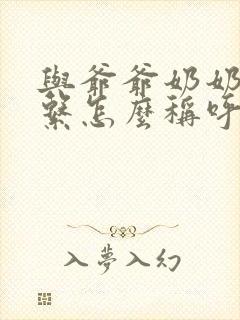 與爺爺奶奶
繫怎麼稱呼
入夢入幻